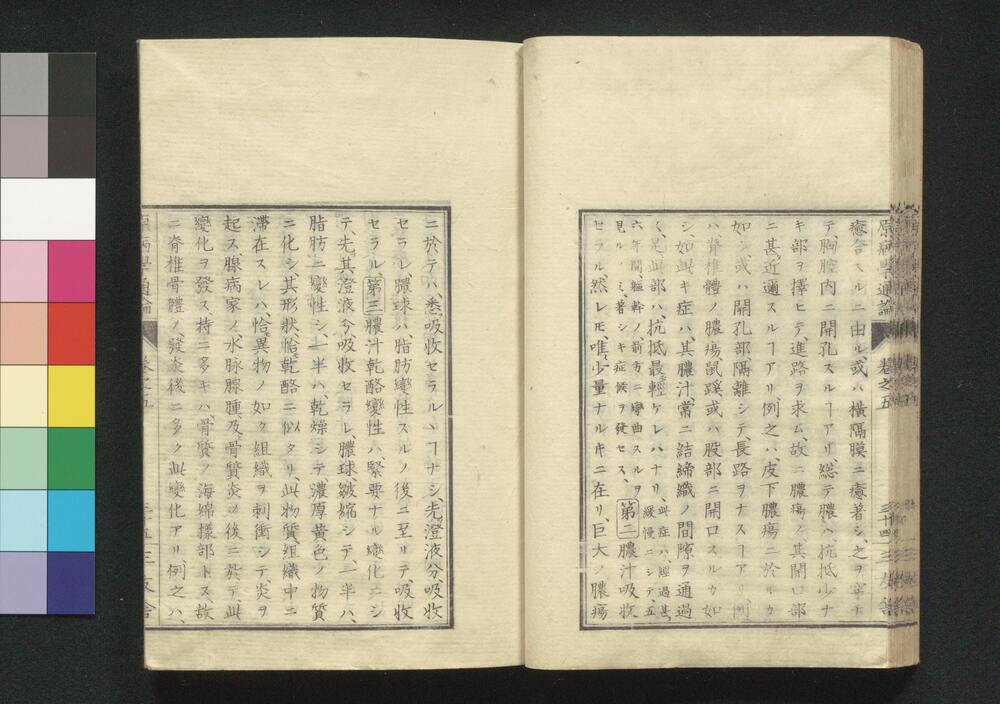 原病學通論 卷之五 三十四
癒合スルニ由ル、或ハ横隔膜ニ癒著シ、之ヲ穿チ
テ胸腔内ニ開孔スルヿアリ、総テ膿ハ抗抵少ナ
キ部ヲ擇ヒテ、進路ヲ求ム、故ニ膿瘍ノ其開口部
ニ甚近邇スルヿアリ、例之ハ皮下膿瘍ニ於ルカ
如シ、或ハ開孔部隔離シテ、長路ヲナスヿアリ、例
ハ脊椎體ノ膿瘍、鼠蹊或ハ股部ニ開口スルカ如
シ、如此キ症ハ、其膿汁、常ニ結締織ノ間隙ヲ通過
ス、是此部ハ、抗抵最輕ケレハナリ、此症ハ經過甚
緩慢ニシテ、五
六年間軀幹ノ前方ニ彎曲スルヲ
見ルノミ、著シキ症候ヲ発セス、第二膿汁吸收
セラル、然レ𪜈、唯少量ナルキニ在リ、巨大ノ膿瘍
ニ於テハ、悉吸收セラルヽヿナシ、先澄液分吸收
セラレ、膿球ハ脂肪變性スルノ後ニ至リテ、吸收
セラル、第三膿汁乾酪變性ハ、緊要ナル變化ニシ
テ、先其澄液分吸收セラレ、膿球皺縮シテ、一半ハ、
脂肪ニ變性シ、一半ハ、乾燥シテ、濃厚黄色ノ物質
ニ化シ、其形狀、恰乾酪ニ似タリ、此物質、組織中ニ
滯在スレハ、恰異物ノ如ク組織ヲ刺衝シテ、炎ヲ
起ス、腺病家ノ水脉腺腫、及骨質炎ノ後ニ於テ此
變化ヲ發ス、特ニ多キハ、骨質ノ海綿樣部トス、故
ニ脊椎骨體ノ發炎後ニ多ク此變化アリ、例之ハ、
原病學通論 卷之五